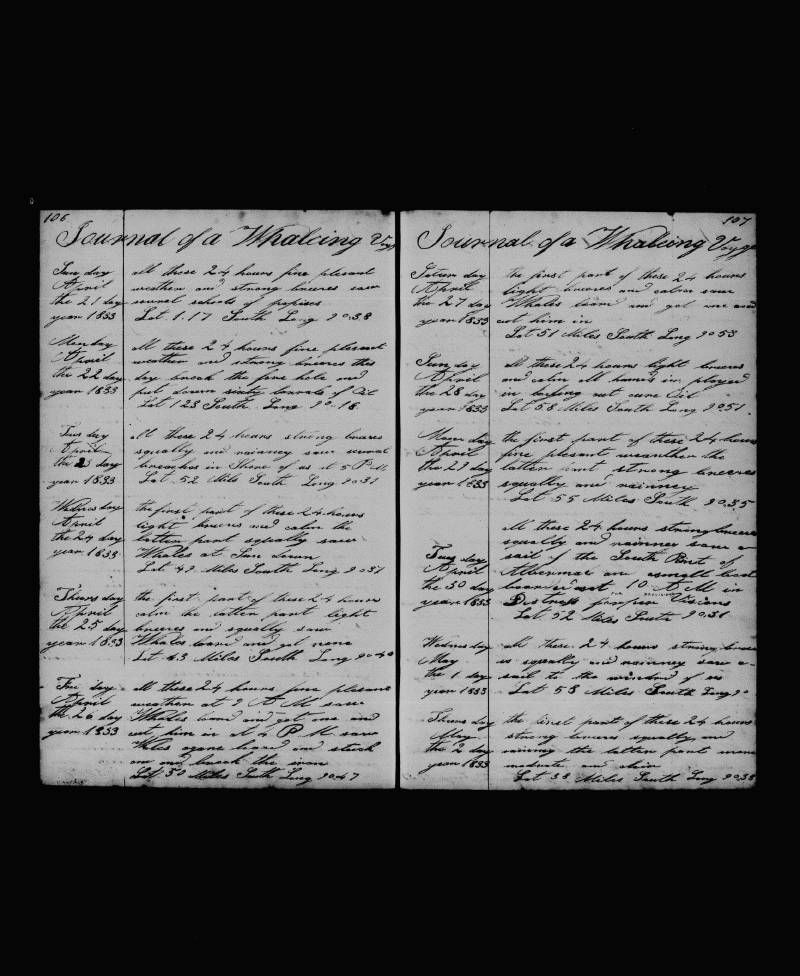 106
Journal of a Whaleing Voyg
Sun day
April
the 21 day
year 1833
All these 24 hours fine plesant
weather and strong breeses saw
Lat 1.17 South Long 90.38
Mon day
April
the 22 day
year 1833
All these 24 hours fine plesant
weather and strong breeses this
day broak the fore hole and
put down sixty barrels of Oil
Lat 1.23 South Long 90.18
Tues day
April
the 23 day
year 1833
All these 24 hours strong breeses
squally and rainney saw
breaches in Shore of us at 5 P M
Lat 52 Mile South Long 90.31
Wednes day
April
the 24 day
year 1833
the first part of these 24 hours
light breeses and calm the
latter part squally saw
Whales at Sun down
Lat 49 Miles South Long 90.37
Thurs day
April
the 25 day
year 1833
the first part of these 24 hours
calm the latter part light
breeses and squally saw
Whales loard and got none
Lat 43 Miles South Long 90.40
Fri day
April
the 26 day
year 1833
All these 24 hours fine plesant
weather at 9 A M saw
Whales loard and got one and
cut him in at 4 P M saw
Whales agane loard and struck
one and broak the iron
Lat 50 Miles South Long 90.47
107
Journal of a Whaleing Voyge
Satur day
April
the 27 day
year 1833
the first part of these 24 hours
light breeses and calm saw
Whales loard and got one and
cut him in
Lat 51 Miles South Long 90.53
Sun day
April
the 28 day
year 1833
All these 24 hours light breeses
and calm all hands in ployed
in boiling out oure Oil
Lat 58 Miles South Long 90.51
Mon day
April
the 29 day
year 1833
the first part of these 24 hours
fine plesant weanther the
latter part strong breeses
squally and rainney
Lat 55 Miles South 90.35
Tues day
April
the 30 day
year 1833
All these 24 hours strong breeses
squally and rainney saw a
sail of the South Pint of
Albermal an small boat
boarded us at 10 A M in
Distress for pro Visions
FOR PROVISIONS
Lat 52 Miles South 90.31
Wednes day
May
the 1 day
year 1833
All these 24 hours strong breese
es squally and rainney saw a
sail to the windard of us
Lat 58 Miles South Long 90
Thurs day
May
the 2 day
year 1833
the first part of these 24 hours
strong breeses squally and
rainney the latter part more
moderate and
Lat 38 Miles South Long 90.38